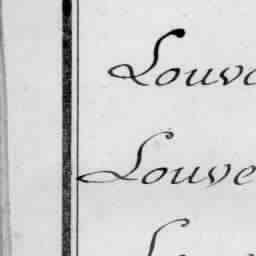 Louve
Louve